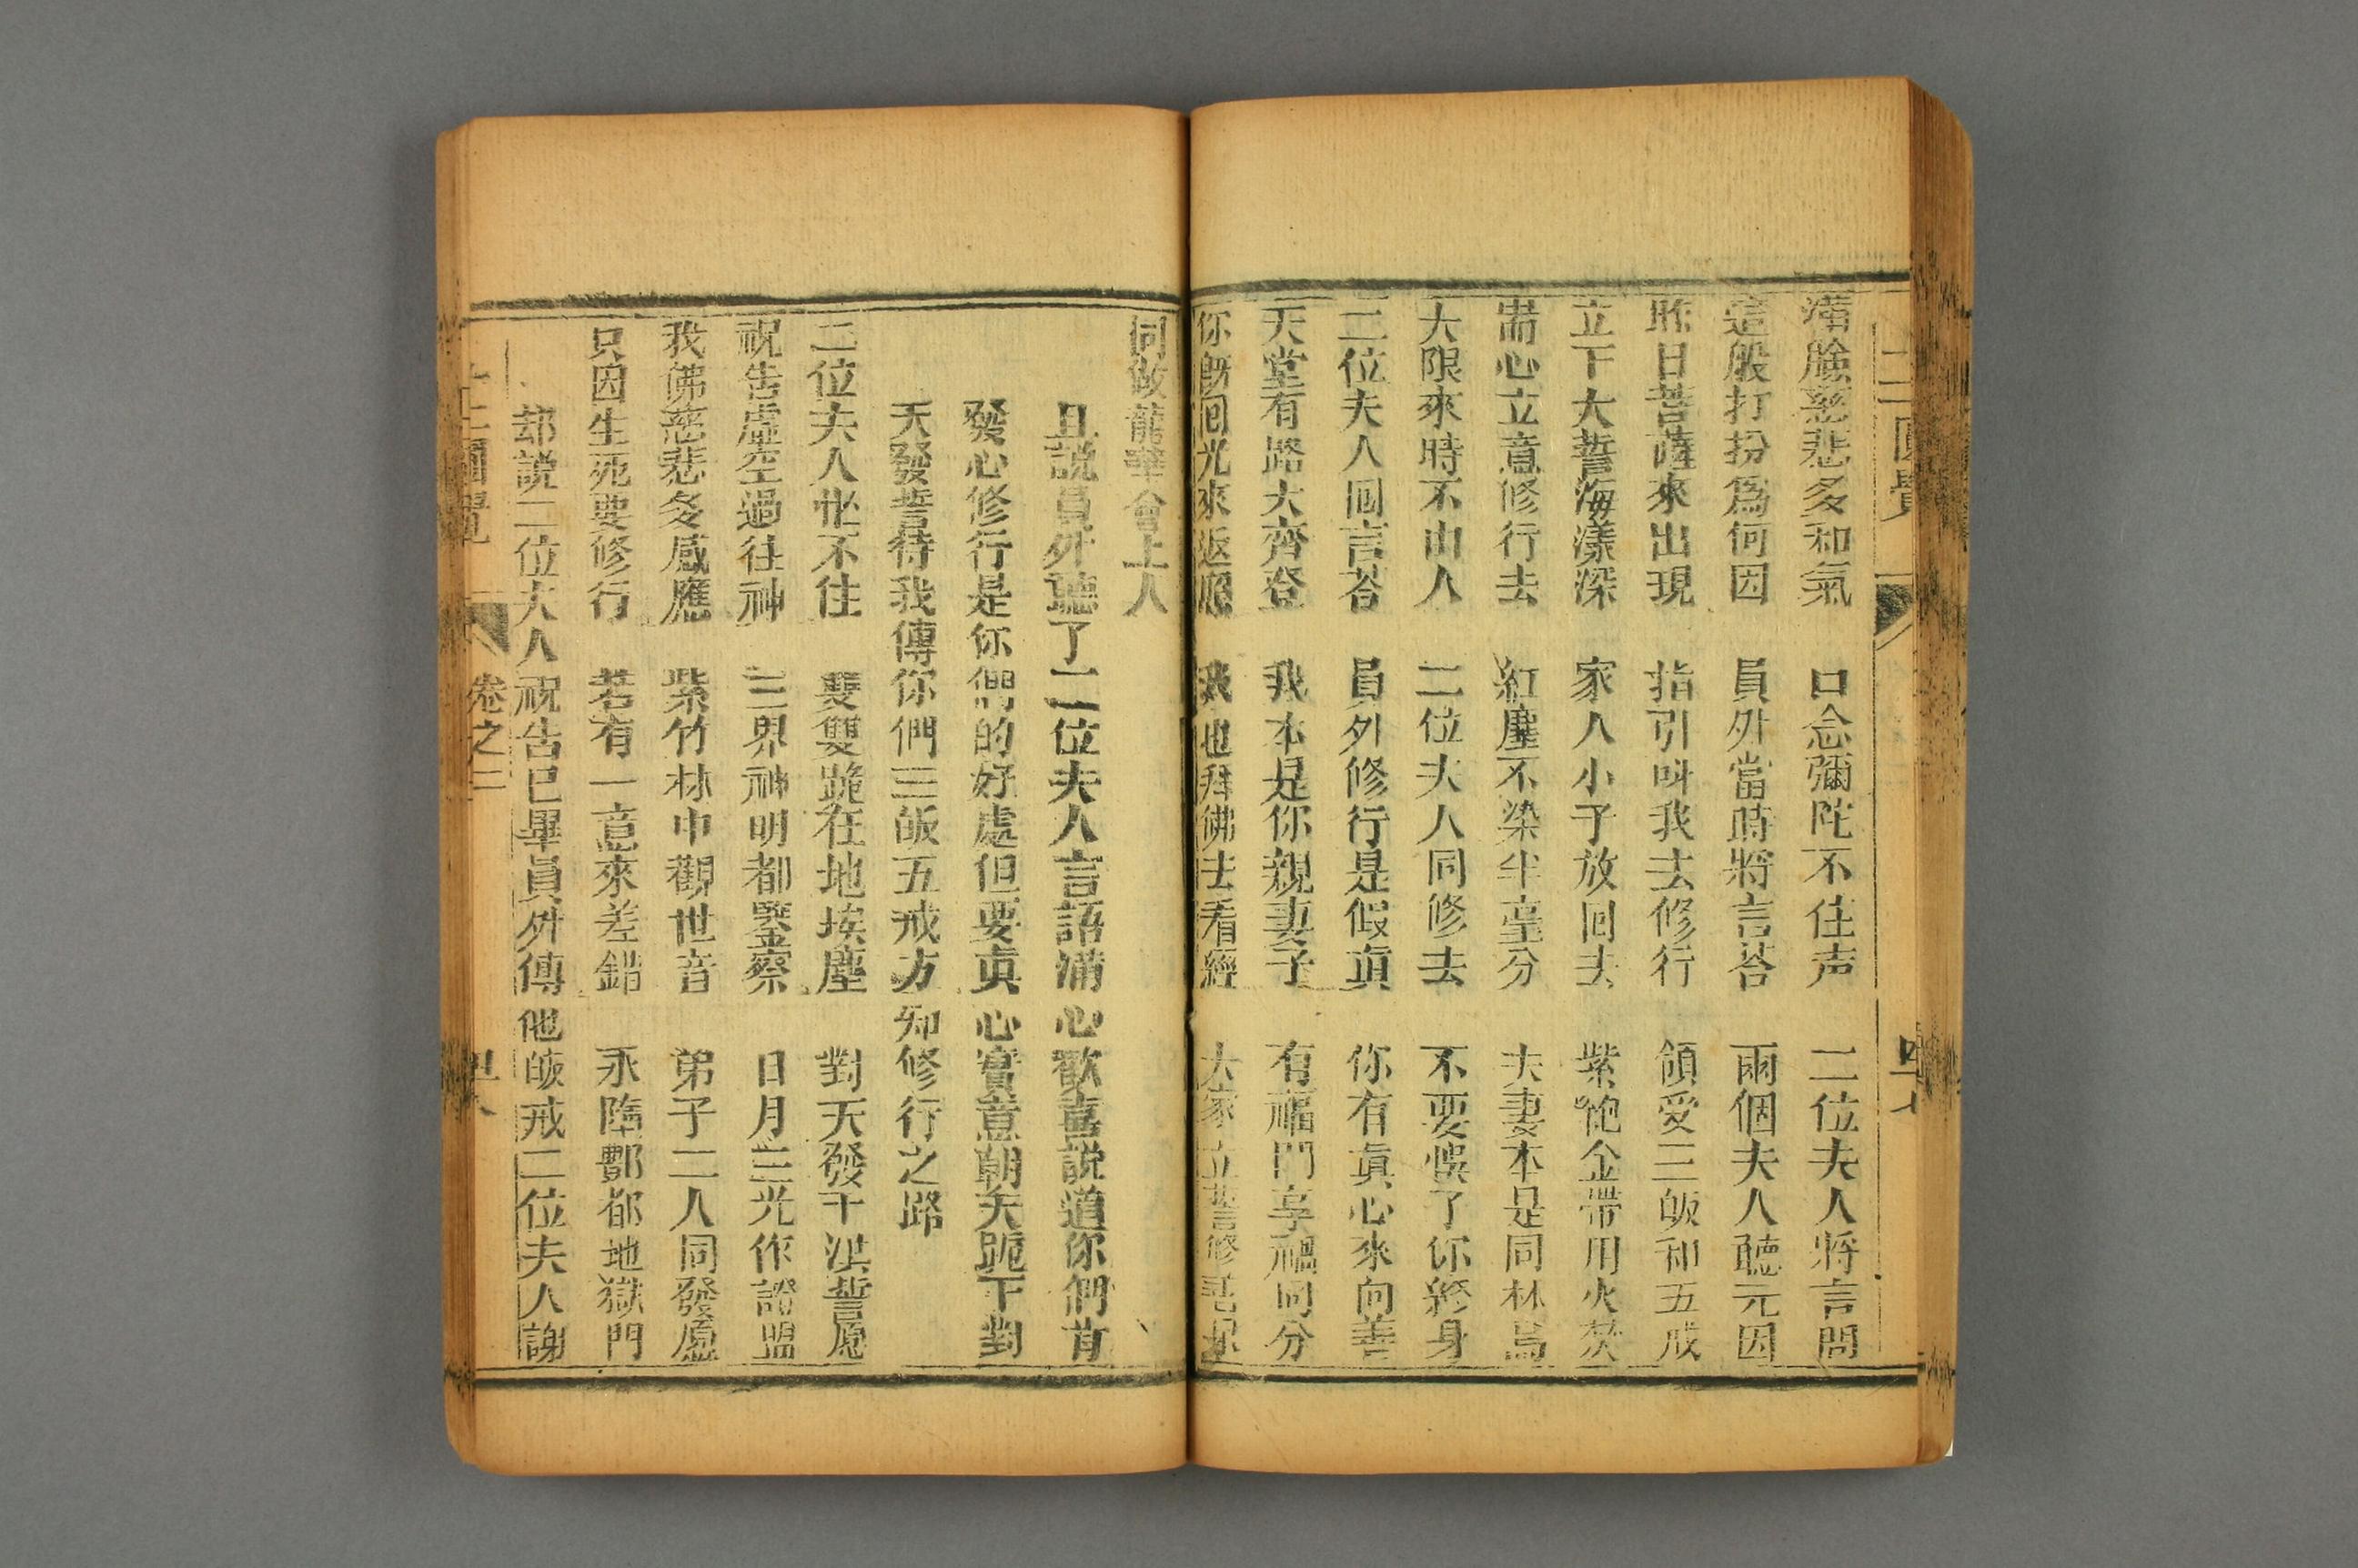 圓覺
滿臉慈悲多和氣 口念彌陀不住声 二位夫人將言問
這般打扮爲何因 員外當時將言荅 兩個夫人聽元因
昨日菩薩來出現 指引呌我去修行 領受三皈和五戒
立下大誓海漾深 家人小子放回去 紫袍金帶用火焚
耑心立意修行去 紅塵不染半毫分 夫妻本是同林鳥
大限來時不由人 二位夫人同修去 不要悞了你終身
二位夫人囬言荅 員外修行是假眞 你有眞心來向善
天堂有路大齊登 我本是你親妻子 有福門享福同分
你旣囬光來返照 我也拜佛去看經 大家立誓修善果
同做龍華會上人
且說員外聽了二位夫人言語滿心歡喜說道你們肯
發心修行是你們的好處但要眞心實意朝天跪下對
天發誓待我傳你們三皈五戒方知修行之路
二位夫人忙不住 雙雙跪在地埃塵 對天發下洪誓愿
祝告虛空過往神 三界神明都鑒察 日月三光作證盟
我佛慈悲多感應 紫竹林中觀世音 弟子二人同發愿
只因生死要修行 若有一意來差錯 永墮酆都地獄門
却說二位夫人祝告已畢員外傳他皈戒二位夫人謝
卷之二